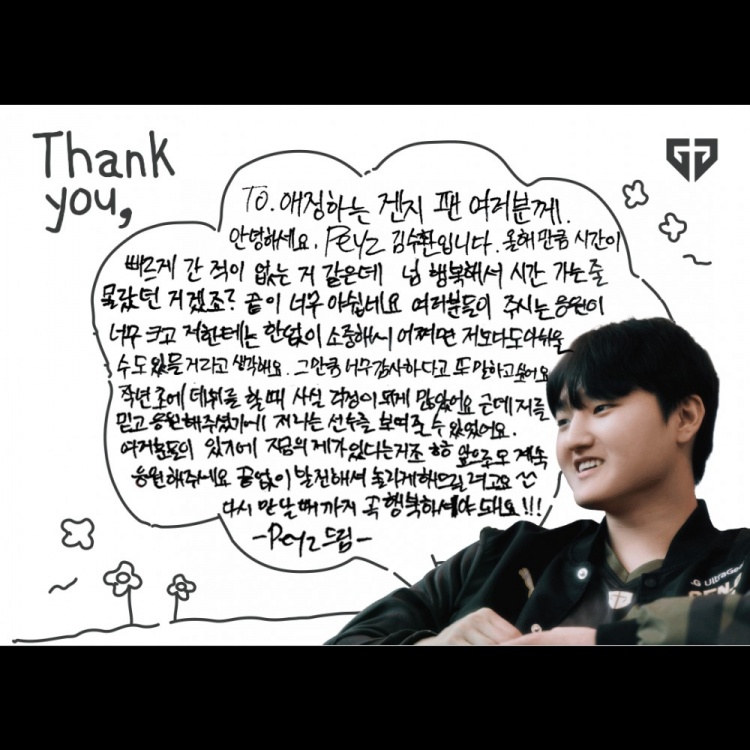 Thank
you,
To. 애정하는 젠지 팬 여러분께.
안녕하세요. Peyz 김수환입니다. 올해만큼 시간이
빠르게 간 적이 없는 거 같은데 넘 행복해서 시간 가는줄
몰랐던 거겠죠? 끝이 너무 아쉽네요 여러분들이 주시는 응원이
너무 크고 저한테는 한없이 소중해서 어쩌면 저보다도 아쉬울
수도 있을 거라고 생각해요. 그만큼 너무 감사하다고 또 말하고 싶어요
작년 초에 데뷔를 할 때 사실 걱정이 되게 많았어요 근데 저를
믿고 응원해주셨기에 저라는 선수를 보여줄 수 있었어요.
여러분들이 있기에 지금의 제가 있다는거죠 ㅎㅎ 앞으로도 계속
응원해주세요 끝없이 발전해서 놀라게해드릴려고요
다시 만날 때 까지 꼭 행복하셔야 돼요!!!
-Peyz드림-
UltraGear